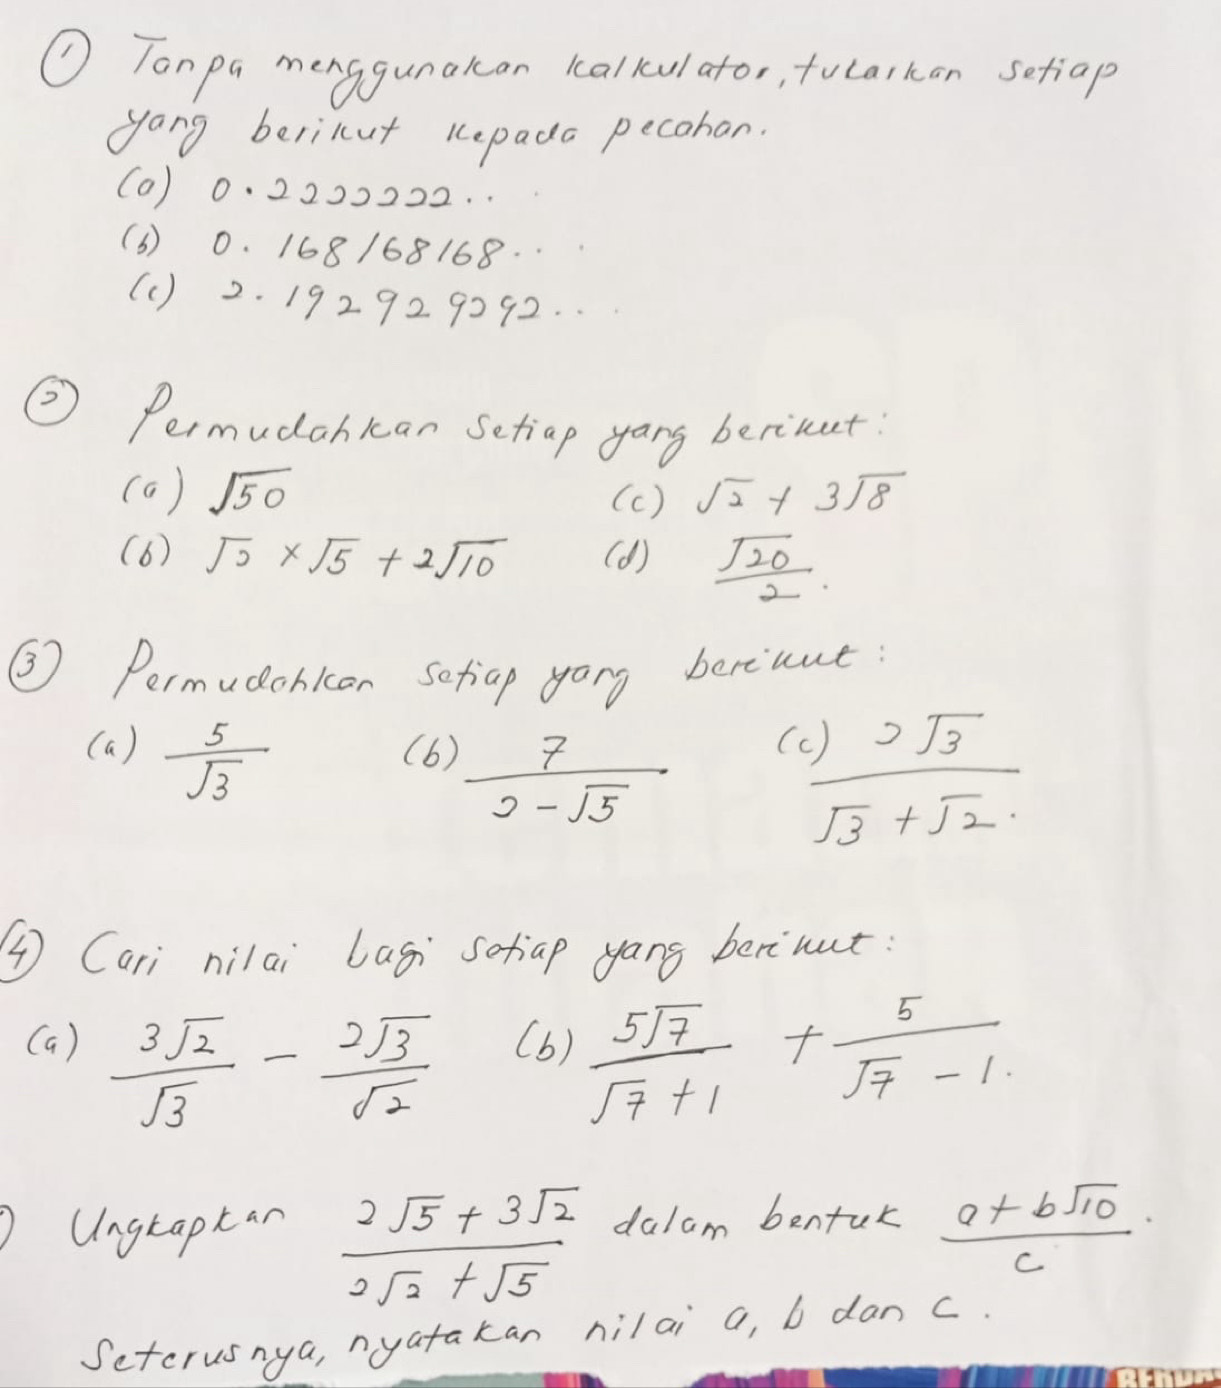 ① Tanpa menggunakan kalkulator, tukarkan setiap
yang berikut kepada pecahan.
(a) 0.2222222...
(b) 0.168168168...
(c) 2.192929292...
② Permudahkan setiap yang berikut:
(a) √50 (c) √2 + 3√8
(b) √2 × √5 + 2√10 (d) √20/2.
③ Permudahkan setiap yang berikut:
(a) 5/√3 (b) 7/(2 - √5) (c) 2√3/(√3 + √2).
④ Cari nilai bagi setiap yang berikut:
(a) 3√2/√3 - 2√3/√2 (b) 5√7/(√7 + 1) + 5/(√7 - 1).
Ungkapkan (2√5 + 3√2)/(2√2 + √5) dalam bentuk (a + b√10)/c.
Seterusnya, nyatakan nilai a, b dan c.